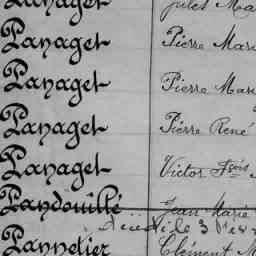 Panaget Jules Ma
Panaget Pierre Mari
Panaget Pierre Mari
Panaget Pierre René
Panaget Victor Fçois
Pandouillé Jean Marie
décédé le 3
Pannetier Clément M